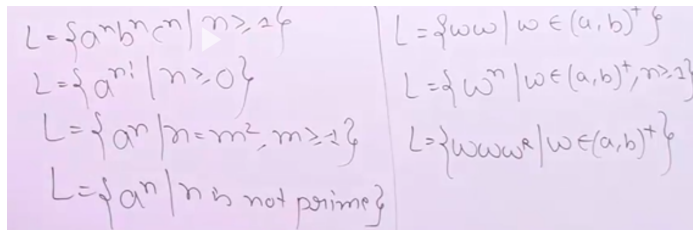 L={aⁿbⁿcⁿ | n≥1}
L={aⁿ! | n≥0}
L={aⁿ | n=m², m≥1}
L={aⁿ | n is not prime}
L={ωω | ω∈(a,b)⁺}
L={ωⁿ | ω∈(a,b)⁺, n≥1}
L={ωωωᴿ | ω∈(a,b)⁺}